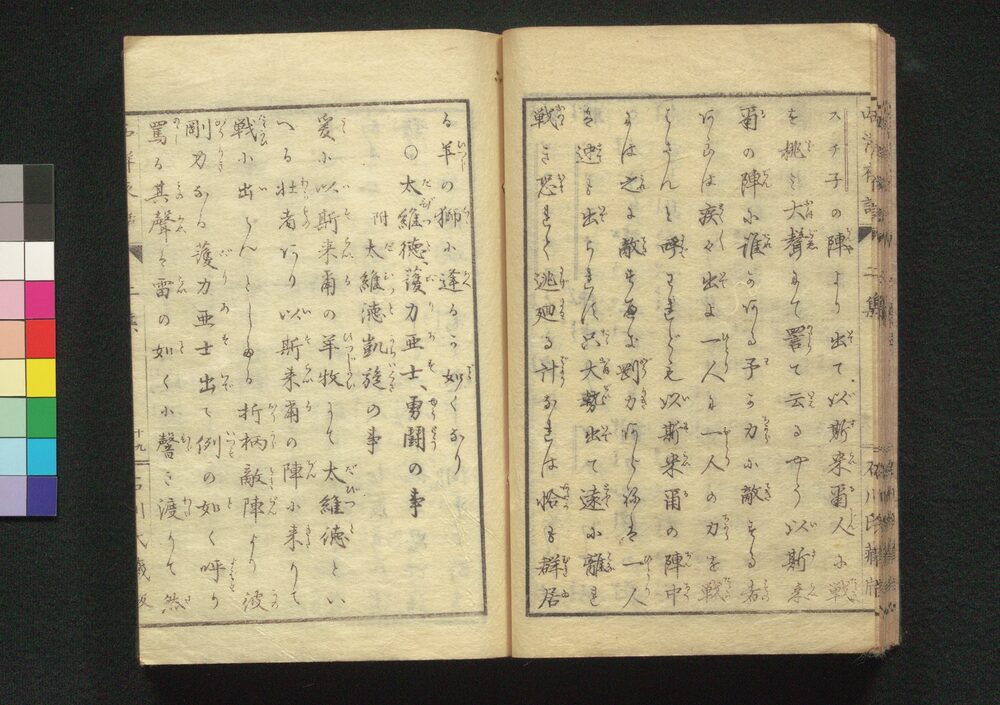 スチ子の陣より出て以斯来爾人に戦
を挑み大聲にて詈て云るやう以斯来
爾の陣に誰か予が力に敵する者
あらは疾々出よ一人と一人の力を戦
はさんと呼はれども以斯来爾の陣中
には之に敵すべき剛力あらねば一人
も進み出らず只大勢出て遠に離れ
戦き恐れて逃廻る計なれは恰も群居
る羊の獅に逢るが如くなり
〇太維德、護力亜士、勇闘の事
附太維徳凱旋の事
爰に以斯来爾の羊牧にて太維徳とい
へる壮者あり以斯来爾の陣に来りて
戦に出でんとしける折柄敵陣より彼
剛力なる護力亜士出て例の如く呼り
罵る其聲は雷の如く小聲き渡りて然
二集
十九